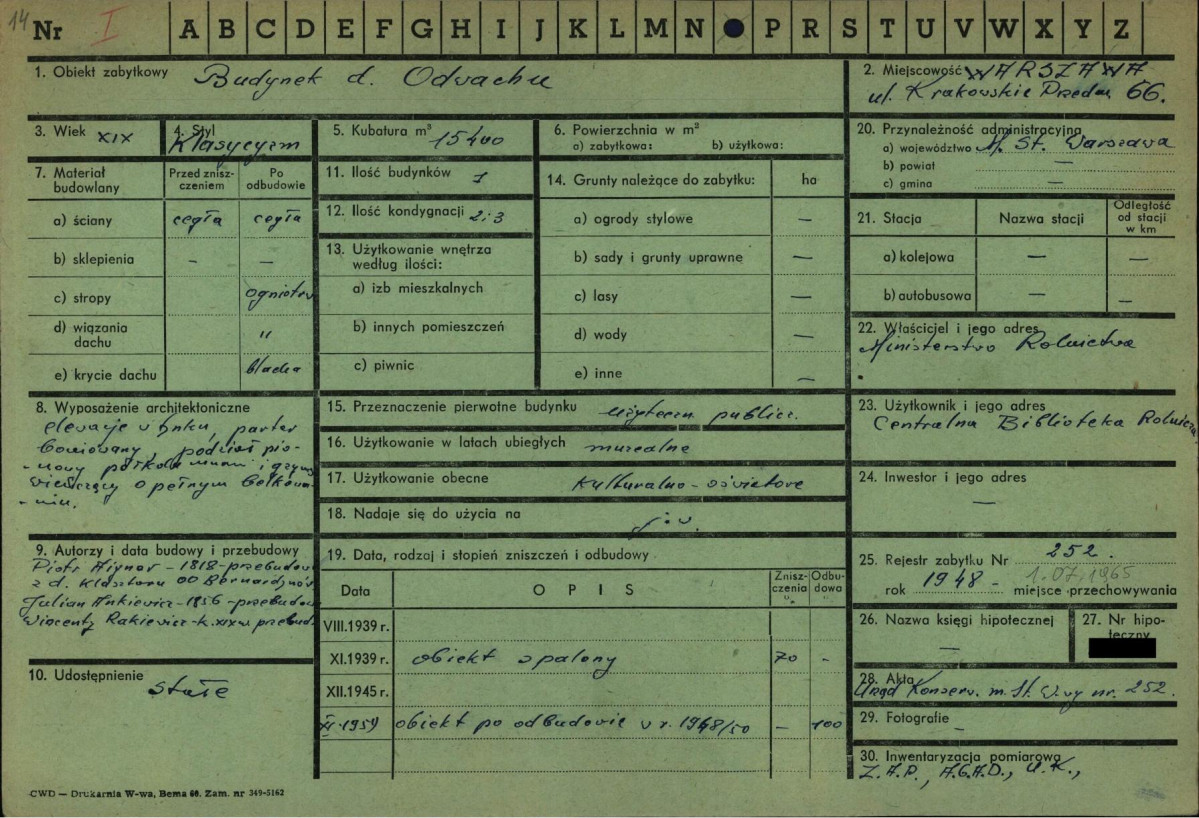 14
Nr I A B C D E F G H I J K L M N P R S T U V W X Y Z
1. Obiekt zabytkowy Budynek d. Odwachu
2. Miejscowość WARSZAWA
ul. Krakowskie Przedm. 66.
3. Wiek XIX
4. Styl
Klasycyzm
5. Kubatura m³ 15400
6. Powierzchnia w m²
a) zabytkowa: b) użytkowa:
7. Materiał budowlany
Przed znisz-
czeniem
Po
odbudowie
a) ściany cegła cegła
b) sklepienia — —
c) stropy ogniotrw
d) wiązania
dachu "
e) krycie dachu blacha
8. Wyposażenie architektoniczne
elewacje w tynku, parter
boniowany, podział pio-
-nowy półkolumnami i gzyms
wieńczący o pełnym belkowa-
-niu.
9. Autorzy i data budowy i przebudowy
Piotr Aigner - 1818 - przebudow
z d. klasztoru OO Bernardynów
Julian Ankiewicz - 1856 - przebudow
Wincenty Rakiewicz - k. XIX w. przebud.
10. Udostępnienie
stałe
11. Ilość budynków 1
12. Ilość kondygnacji 2i3
13. Użytkowanie wnętrza
według ilości:
a) izb mieszkalnych
b) innych pomieszczeń
c) piwnic
14. Grunty należące do zabytku: ha
a) ogrody stylowe —
b) sady i grunty uprawne —
c) lasy —
d) wody —
e) inne —
15. Przeznaczenie pierwotne budynku użyteczn. publicz.
16. Użytkowanie w latach ubiegłych muzealne
17. Użytkowanie obecne kulturalno-oświatowe
18. Nadaje się do użycia na j.w.
19. Data, rodzaj i stopień zniszczeń i odbudowy
Data OPIS
Znisz-
czenia
%
Odbu-
dowa
%
VIII.1939 r.
XI.1939 r. obiekt spalony 70 -
XII.1945 r.
XI.1959 obiekt po odbudowie w r. 1948/50 — 100
20. Przynależność administracyjna
a) województwo M. St. Warszawa
b) powiat —
c) gmina —
21. Stacja Nazwa stacji
Odległość
od stacji
w km
a) kolejowa — —
b) autobusowa — —
22. Właściciel i jego adres
Ministerstwo Rolnictwa
23. Użytkownik i jego adres
Centralna Biblioteka Rolnicza
24. Inwestor i jego adres
—
25. Rejestr zabytku Nr 252.
rok 1948 - 1.07.1965
miejsce przechowywania
26. Nazwa księgi hipotecznej
—
27. Nr hipo-
teczny
28. Akta
Urząd Konserw. m. St. W-wy nr. 252.
29. Fotografie -
30. Inwentaryzacja pomiarowa
Z.A.P., A.G.A.D., U.K.,
CWD — Drukarnia W-wa, Bema 60. Zam. nr 349-5162